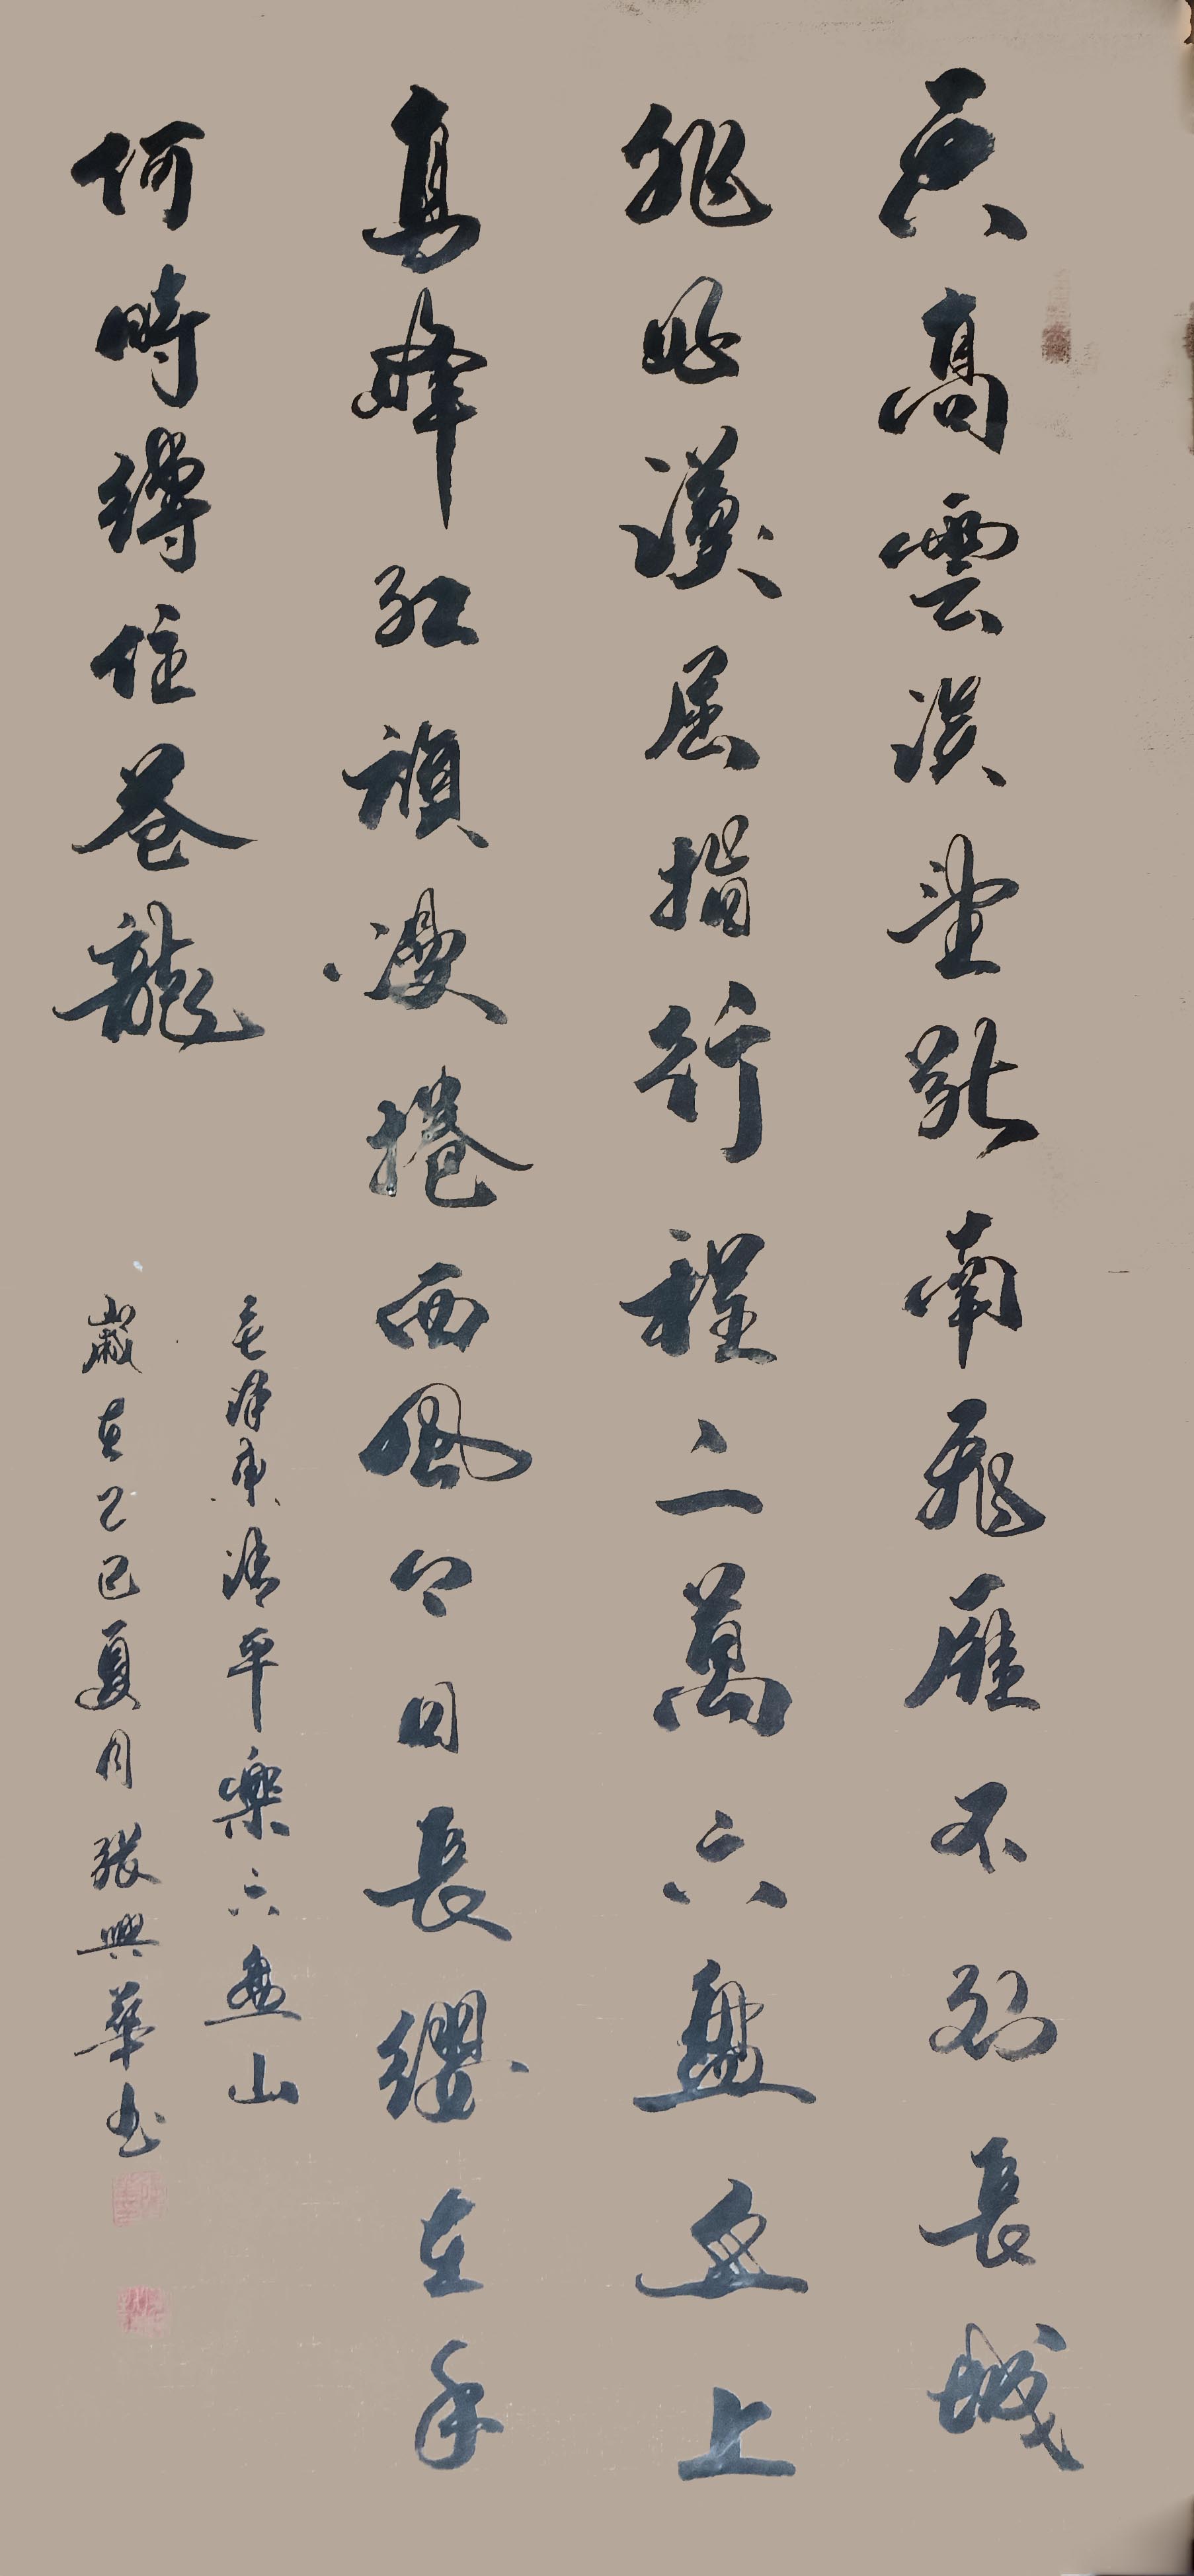 天高雲淡望斷南飛雁不到長城
非好漢屈指行程二萬六盤山上
高峰紅旗漫捲西風今日長纓在手
何時縛住蒼龍
毛澤東清平樂六盤山
歲在乙巳夏月張興華书